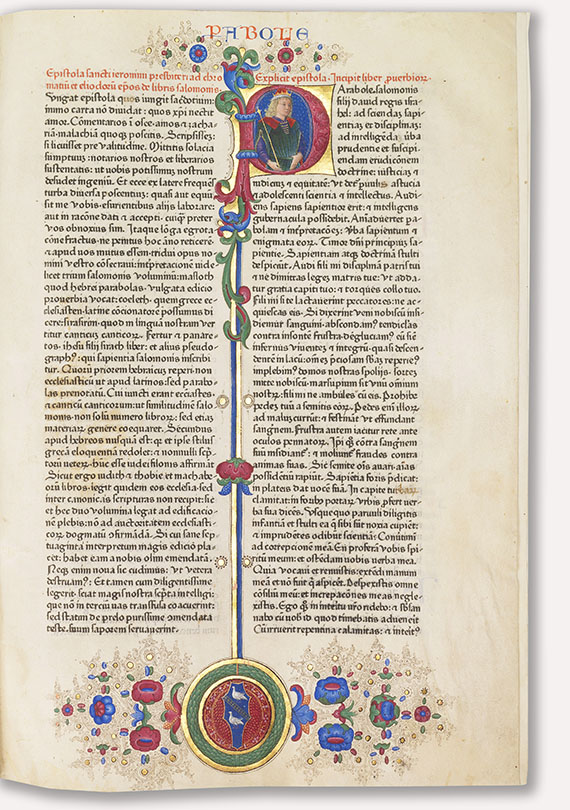 PABOLIE
Epistola sancti ieronimi presbiteri ad chro
matiū et eliodorū epos de libris salomonis.
Iungat epistola quos iungit sacdotium:
immo carta nō diuidat: quos xpi nectit
amor. Cōmentarios ī osee. amos & zacha
riā. malachiā quoqʒ poscitis. Scripsissez:
si licuisset pre valitudine. Mittitis solacia
sumptuuz: notarios nostros et librarios
sustentatis: ut uobis potissimuz nostrum
desudet ingeniū. Et ecce ex latere frequēs
turba diuersa poscentiuz: quasi aut equū
sit me vobis esurientibus alijs laborare:
aut in racōne dati & accepti. cuiqʒ preter
vos obnoxius sim. Itaqʒ lōga egrotatiōe
cōne fractus: ne penitus hoc āno reticerē
& apud uos mutus essem: tridui opus no
mini vestro cōsecraui: īnterpretacionē uide
licet trium salomonis voluminū: masloth
quod hebrei parabolas. vulgata edicio
proverbia vocat: coeleth. quem grece ec
clesiasten. latine cōcionatorē possumus di
cere: sirasirim. quod in lingua nostram ver
titur canticū canticor. Fertur & panare
tos. ihsu filij sirach liber: et alius pseudo
graphꝰ: qui sapientia salomonis inscribi
tur. Quorū priorem hebraicuz reperi. non
ecclesiasticū ut apud latinos: sed parabo
las prenotatū. Cui iuncti erant ecclastes
& canticū canticorum: ut similitudinē salo
monis. non solū numero librorz: sed etiaz
materiarz genere coequaret. Secundus
apud hebreos nusquā est: qʒ et ipse stilus
grecā eloquentiā redolet: & nonnulli scp
torū veterz. hūc esse iudei filonis affirmāt
Sicut ergo iudith & thobie et machabe
orū libros. legit quidem eos ecclesia. sed
inter canonicas scripturas non recipit: sic
et hec duo volumina legat ad edificacio
nē plebis: nō ad auctoritatem ecclesiasti
corz dogmatū cfirmandā. Si cui sane sep
tuaginta interpretum magis edicio pla
cet: habet eam a nobis olim emendatā.
Neqʒ enim noua sic cudimus: ut vetera
destruamꝰ. Et tamen cum diligentissime
legerit. sciat magis nostra scpta intelligi:
que nō in terciū uas transfusa coacuerint:
sed statim de prelo purissime cmendata
teste. suum saporem seruauerint.
Explicit epistola. Incipit liber puerbiorz
Parabole. salomonis
filij dauid regis isra
hel: ad sciendaz sapi
entiaz et disciplinaz:
ad intelligēda. ūba
prudentie et suscipi
endam erudicōnem
doctrine: iusticiaz &
iudiciuz & equitatē: vt detʳ puulis. astucia
& adolescenti scientia & intellectus. Audi
ens sapiens sapientior erit: & intelligens
gubernacula possidebit. Aniaduertet pa
bolam & īnpretacōez: Vba sapientum &
enigmata eorz. Timor dnī principius sa
pientie. Sapientiam atqʒ doctrinā stulti
despiciūt. Audi fili mi disciplinā patris tui
& ne dimittas legez matris tue: vt adda
tur gratia capiti tuo: & torques collo tuo.
Fili mi si te lactauerint peccatores: ne ac
quiescas eis. Si dixerint veni nobiscū insi
diemur sanguini. abscondamꝰ tendiclas
contra insontē frustra: deglutiamꝰ. cū sicut
infernus viuentez & integrū: quasi descen
dentē in lacū: omez pciosam sbāz repiemꝰ:
implebimꝰ domos nostras spolijs. sortez
mitte nobiscū: marsupiū sit vnū omnium
nostrz: fili mi ne ambules cū eis. Prohibe
pedez tuū a semitis eorz. Pedes eni illorz
ad malū currūt: & festināt vt effundant
sangnez. Frustra autem iacitur rete. ante
oculos pennatorz. Ipi qʒ cōtra sangnem
suū insidianꝰ: & moliunꝰ fraudes contra
animas suas. Sic semite oīs auari. aīas
possidentiū rapiūt. Sapientia foris pdicat:
in plateis dat vocē suā. In capite turbarz
clamitat: in foribꝰ portarz vrbis pfert ver
ba sua dices. Usquequo paruuli diligitis
infantiā et stulti ea q̄ sibi sūt noxia cupiēt:
& imprudētes odibūt scientiā: Conūtimi
ad correpcionē meā. En proferā vobis spi
ritū meum: et ostēdam uobis verba mea.
Quia vocaui et renuistis: extēdi manum
meā et nō fuit q̄ aspicēt. Despexistis omne
cōsiliū meū: et increpacōnes meas negle
xistis. Ego qʒ in interitu vrō ridebo: & sbsan
nabo cū uob id quod timebatis aduenēit
Cū irruerit repentina calamitas: & interitꝰ